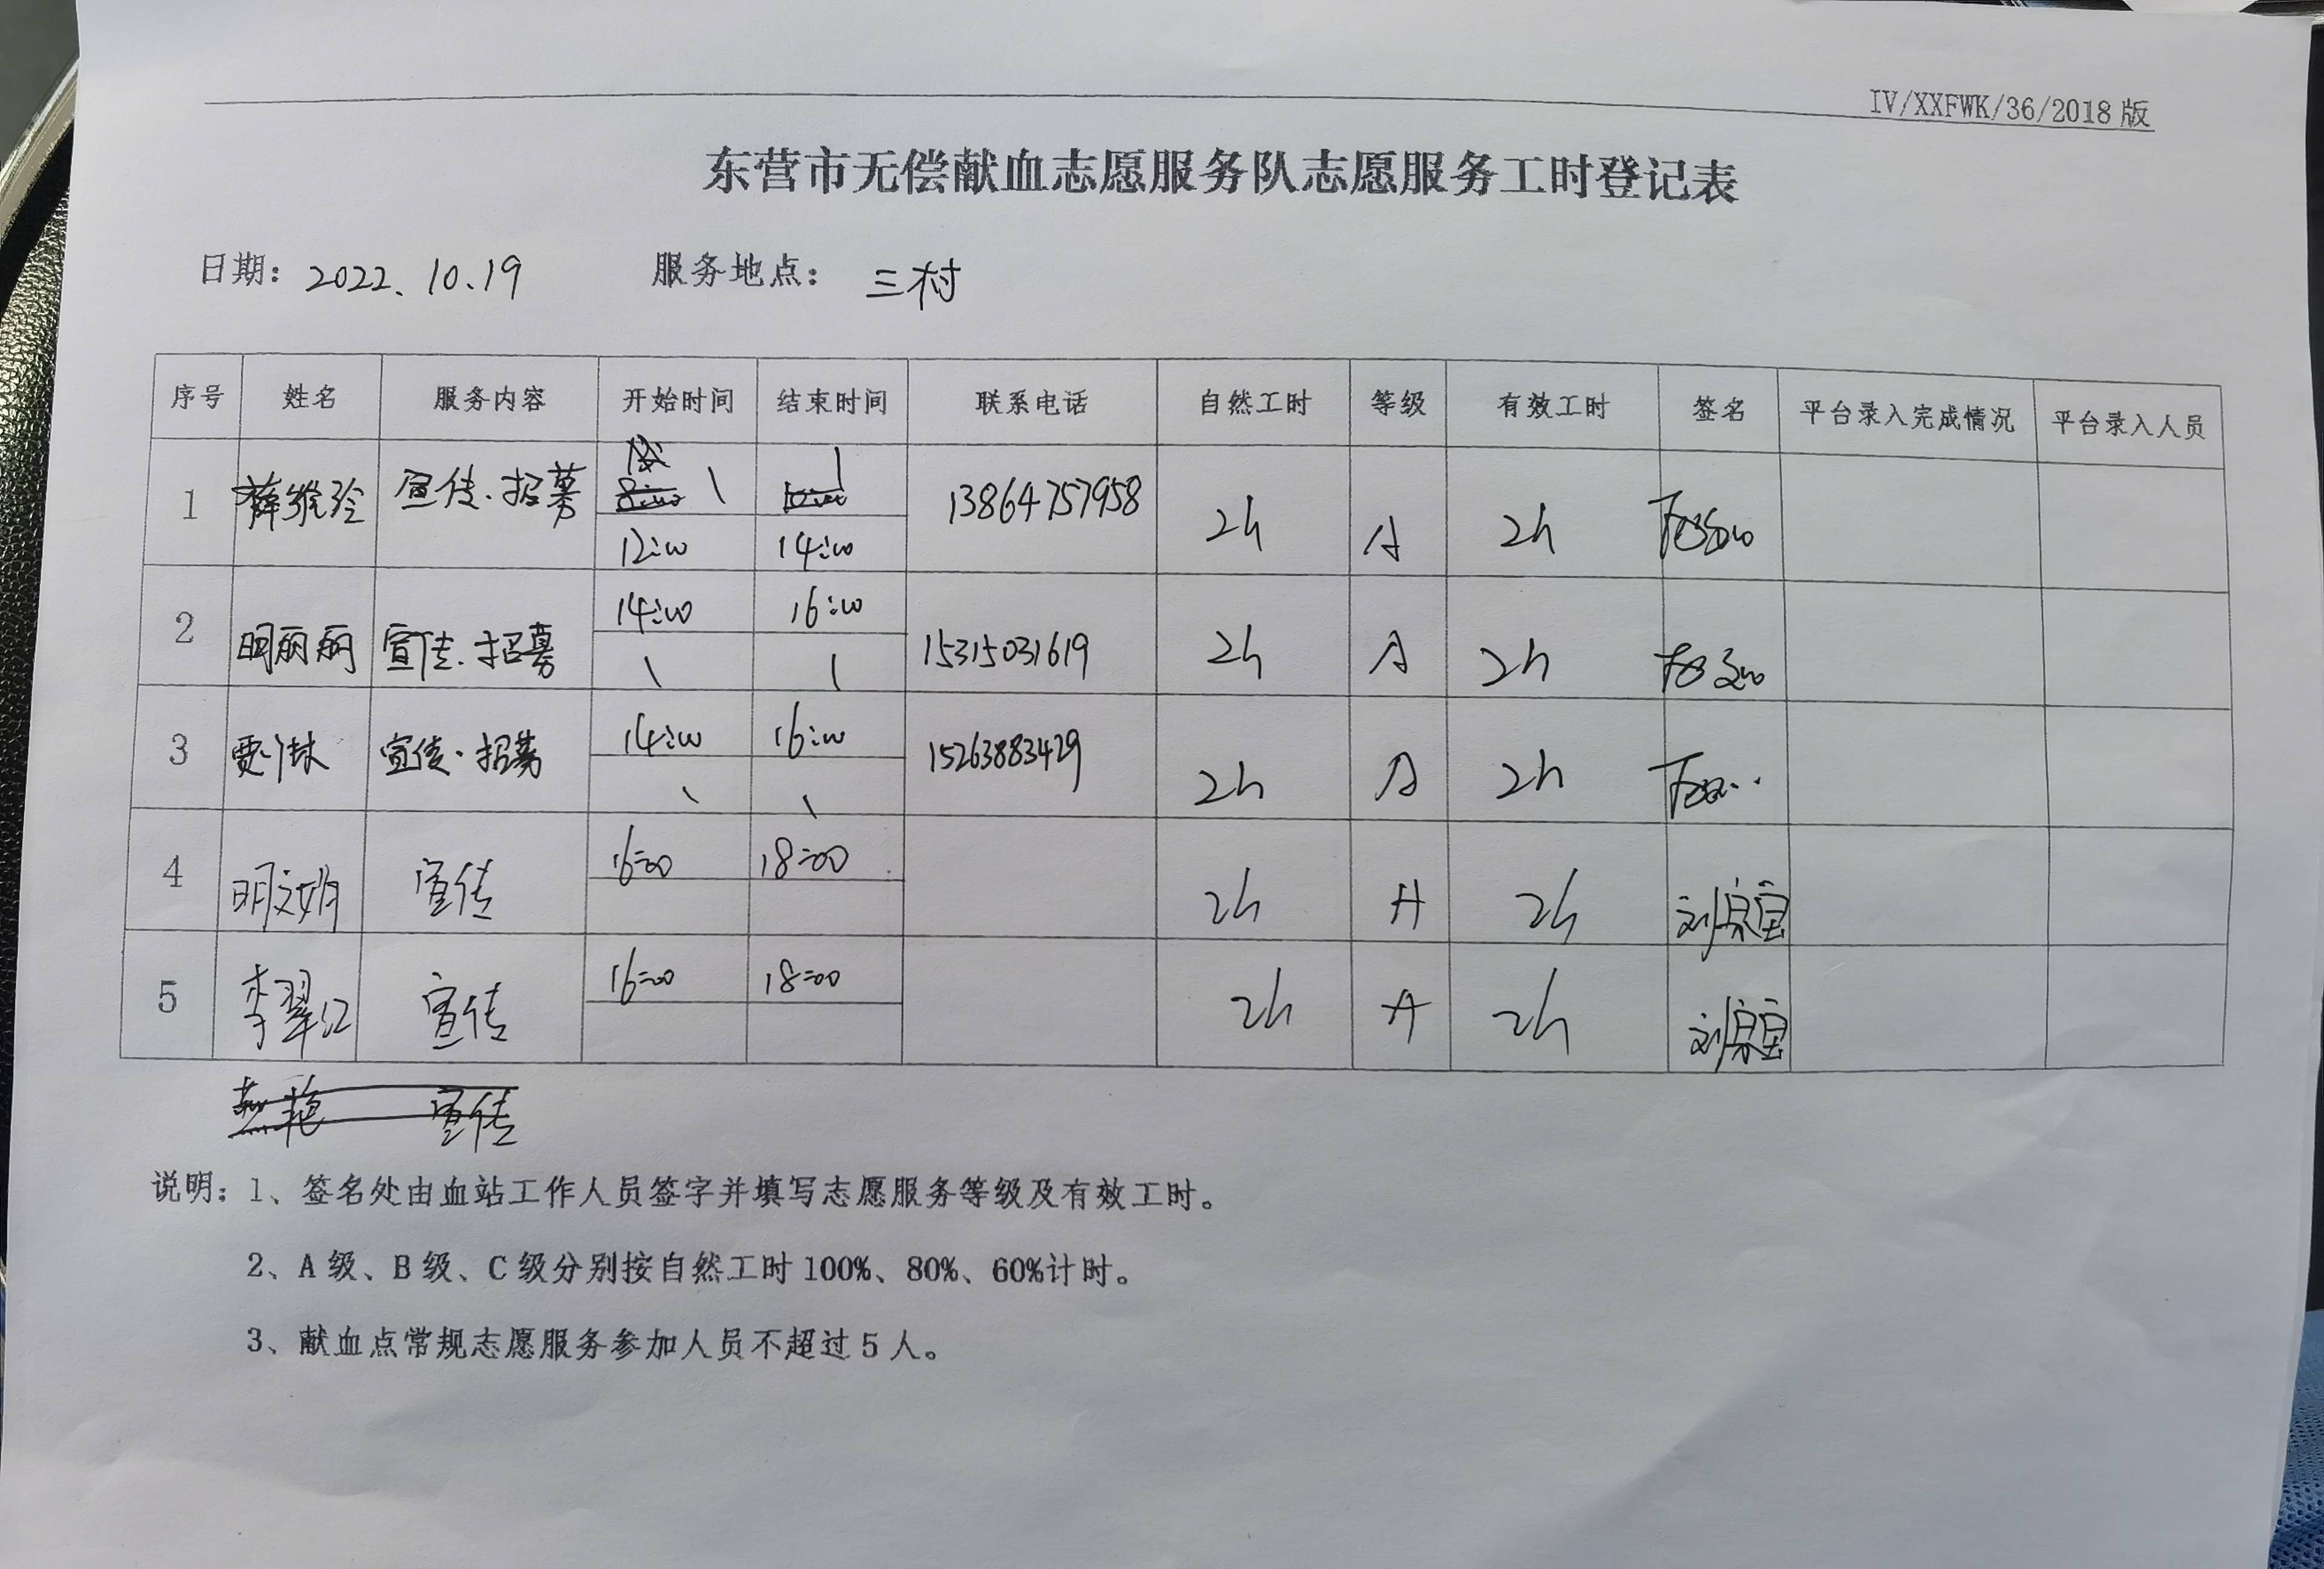 IV/XXFWK/36/2018版
东营市无偿献血志愿服务队志愿服务工时登记表
日期: 2022.10.19 服务地点: 三村
序号 姓名 服务内容 开始时间 结束时间 联系电话 自然工时 等级 有效工时 签名 平台录入完成情况 平台录入人员
1 薛维玲 宣传.招募 12:00 14:00 13864757958 2h A 2h
2 明丽丽 宣传.招募 14:00 16:00 15315031619 2h A 2h
3 宣传.招募 14:00 16:00 15263883429 2h A 2h
4 明文娟 宣传 16:00 18:00 2h A 2h
5 李翠红 宣传 16:00 18:00 2h A 2h
宣传
说明: 1、签名处由血站工作人员签字并填写志愿服务等级及有效工时。
2、A级、B级、C级分别按自然工时100%、80%、60%计时。
3、献血点常规志愿服务参加人员不超过5人。